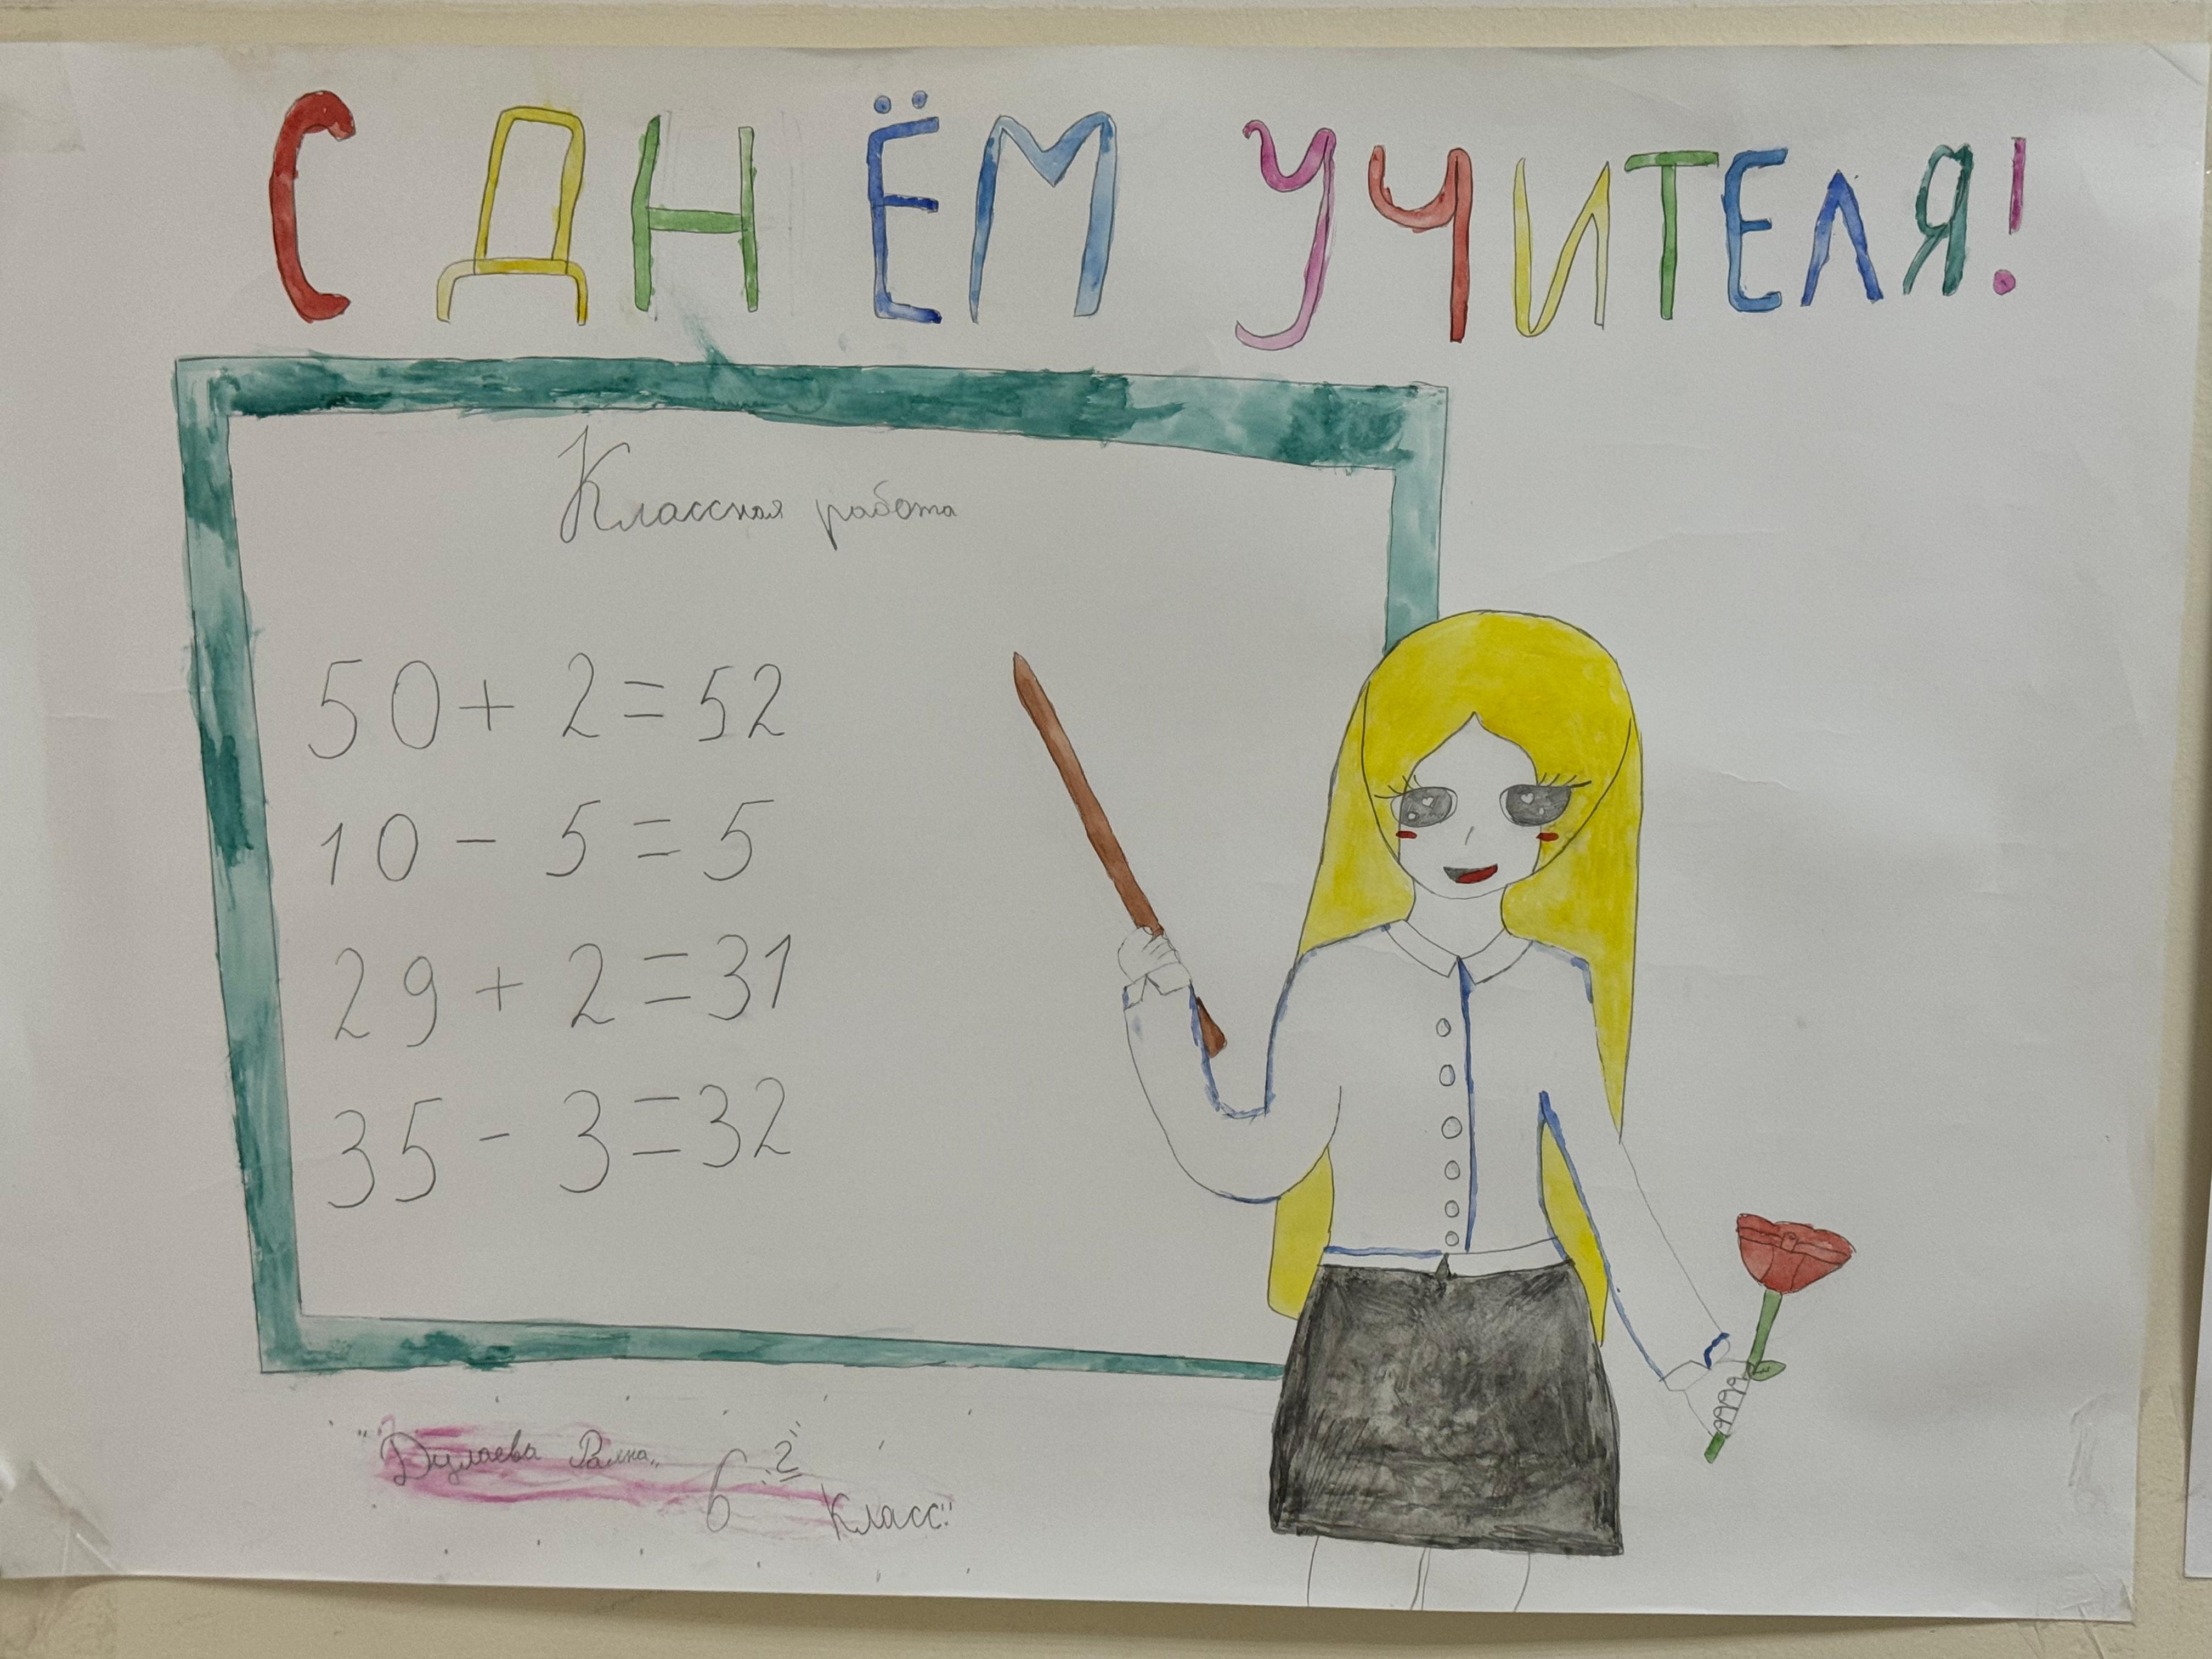 С ДНЁМ УЧИТЕЛЯ!
Классная работа
50 + 2 = 52
10 - 5 = 5
29 + 2 = 31
35 - 3 = 32
"Дулаева
6 "г" класс!"